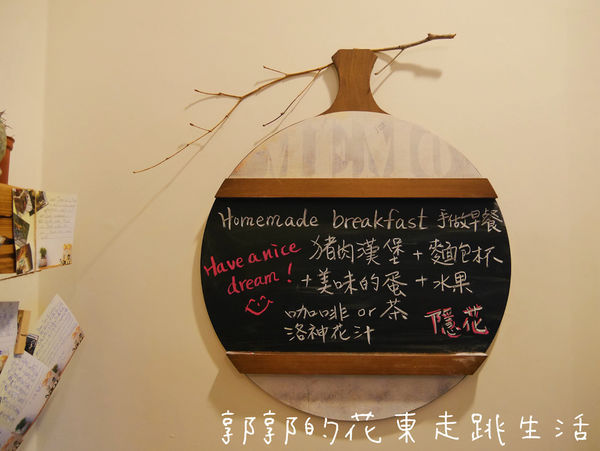 MEMO
Homemade breakfast 手做早餐
Have a nice
dream!
猪肉漢堡 + 麵包杯
+ 美味的蛋 + 水果
咖啡 or 茶
洛神花汁
隱花
郭郭的花東走跳生活